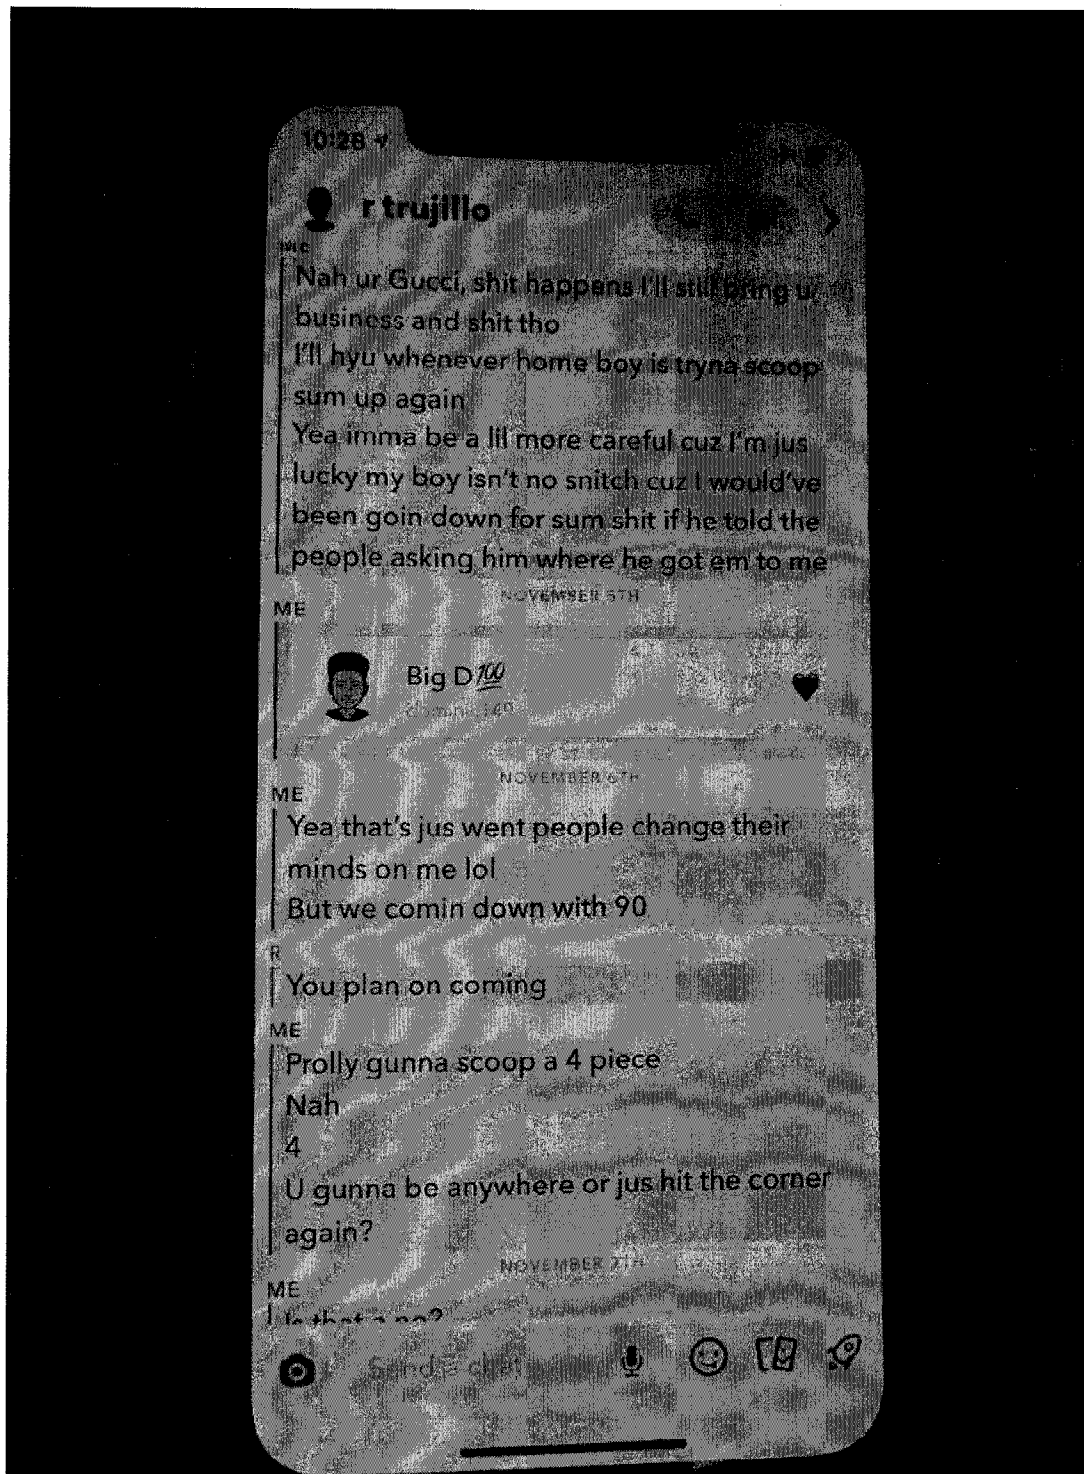 10:28
r trujillo
ME
Nah ur Gucci, shit happens I'll still bring u
business and shit tho
I'll hyu whenever home boy is tryna scoop
sum up again
Yea imma be a lil more careful cuz I'm jus
lucky my boy isn't no snitch cuz I would've
been goin down for sum shit if he told the
people asking him where he got em to me
NOVEMBER 5TH
ME
Big D💯
NOVEMBER 6TH
ME
Yea that's jus went people change their
minds on me lol
But we comin down with 90
R
You plan on coming
ME
Prolly gunna scoop a 4 piece
Nah
4
U gunna be anywhere or jus hit the corner
again?
NOVEMBER 7TH
ME
Is that a no?
Send a chat